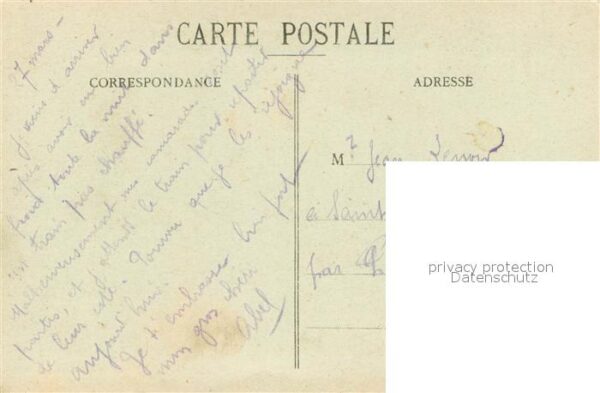 CARTE POSTALE
CORRESPONDANCE
ADRESSE
7 mars -
Je viens d'arriver
après avoir eu bien
froid toute la nuit dans
un train pas chauffé.
Malheureusement mes camarades sont
partis, et j'attends le train pour repartir
de leur côté. Pourvu que je les rejoigne
aujourd'hui.
Je t'embrasse bien fort
mon gros chéri
Abel
Mr Jean
à Saint
par
privacy protection
Datenschutz